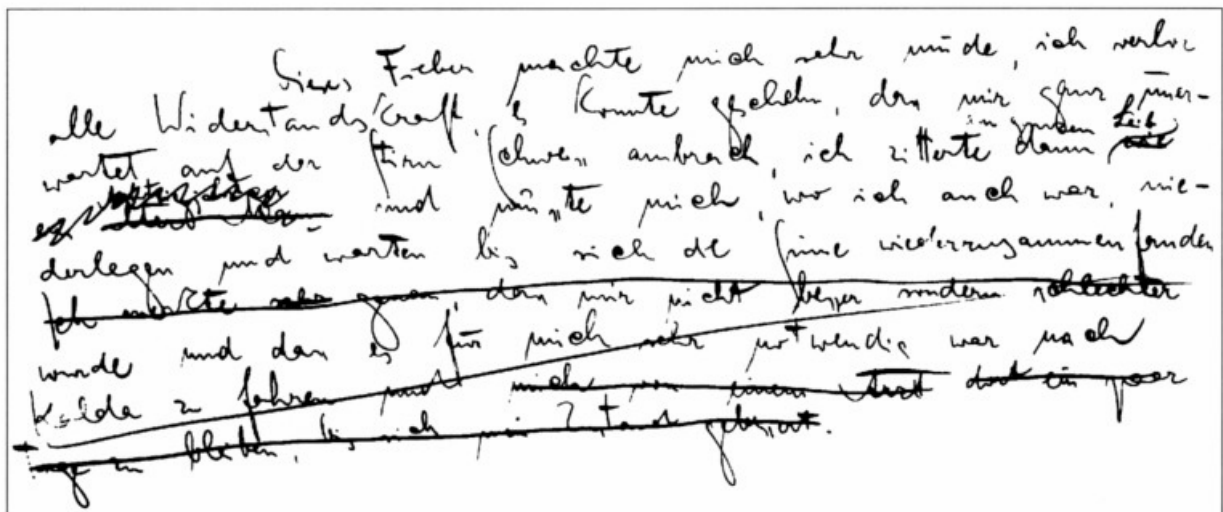 Dieses Fieber machte mich sehr müde, ich verlor
alle Widerstandskraft, es konnte geschehn, dass mir ganz uner-
wartet auf der Stirn Schweiss ausbrach, ich zitterte dann im ganzen Leib
und musste mich, wo ich auch war, nie-
derlegen und warten bis sich die Sinne wiederzusammenfanden
Ich merkte genau, dass mir nicht besser sondern schlechter
wurde und dass es für mich sehr notwendig war nach
Kalda zu fahren und mich von einem Arzt dort ein paar
Tage zu bleiben, bis sich mein Zustand gebessert.